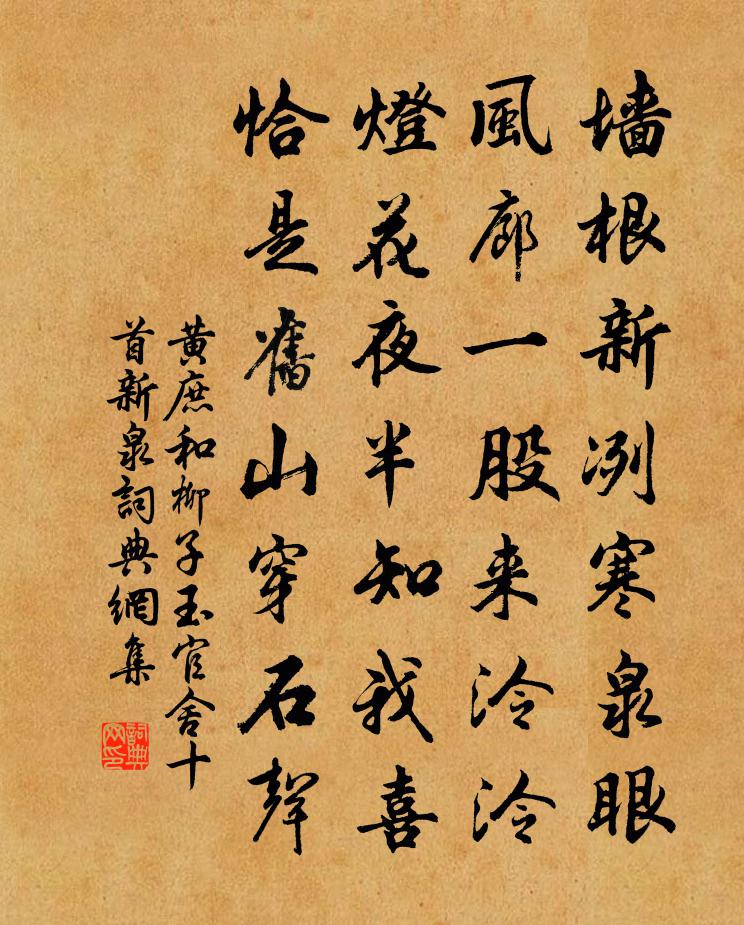 墻根新冽寒泉眼
風廊一股来泠泠
燈花夜半知我喜
恰是舊山穿石聲
黄庶和柳子玉官舍十
首新泉詞典網集
詞典
网印